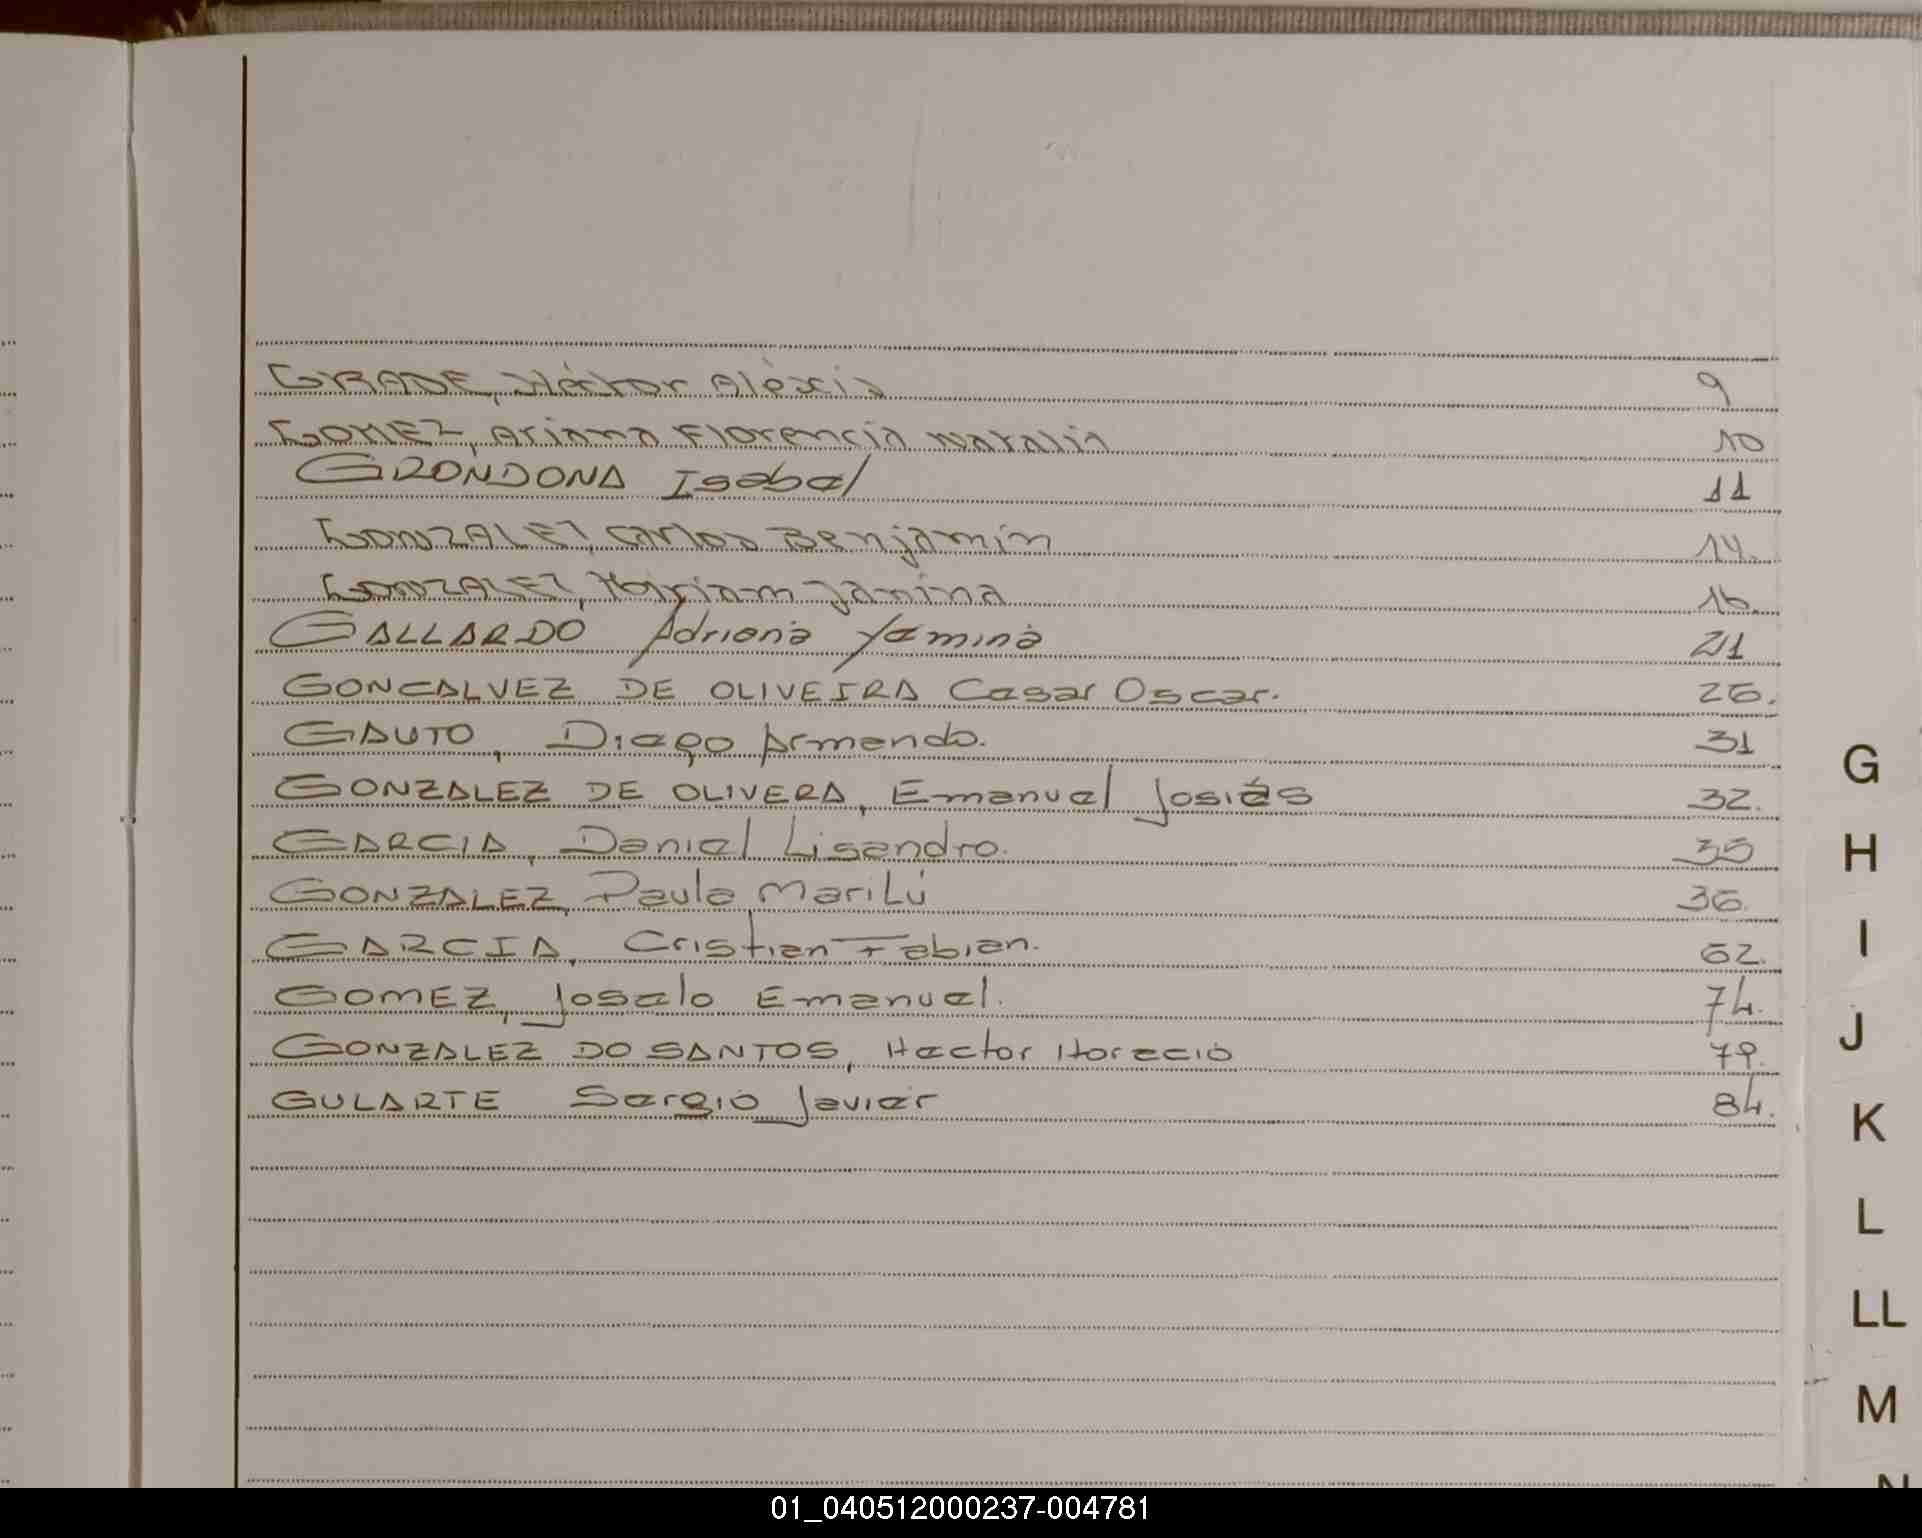 GRADE, Héctor Aléxis 9
GOMEZ, Ariana Florencia Natalia 10
GRONDONA Isabel 11
GONZALEZ, Carlos Benjamín 14.
GONZALEZ, Miriam Janina 16.
GALLARDO Adriana Yamina 21
GONCALVEZ DE OLIVEIRA Cesar Oscar. 26.
GAUTO, Diego Armando. 31
GONZALEZ DE OLIVERA, Emanuel Josiás 32.
GARCIA, Daniel Lisandro. 35
GONZALEZ, Paula Marilú 36.
GARCIA, Cristian Fabian. 62.
GOMEZ, Joselo Emanuel. 74.
GONZALEZ DO SANTOS, Hector Horacio 79.
GULARTE Sergio Javier 84.
G
H
I
J
K
L
LL
M
N
01_040512000237-004781